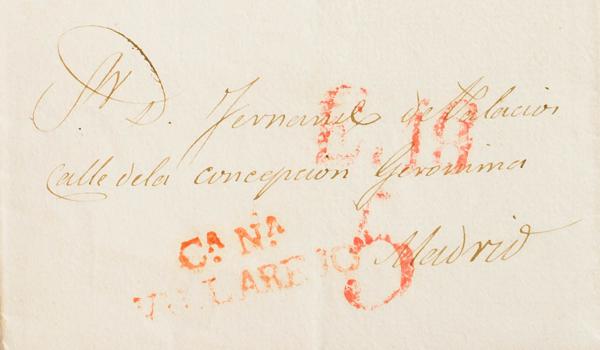 Sr D. Fernando de Palacios
Calle de la Concepcion Geronima
Madrid
E.19
5
Cª Nª
VILLAREJO